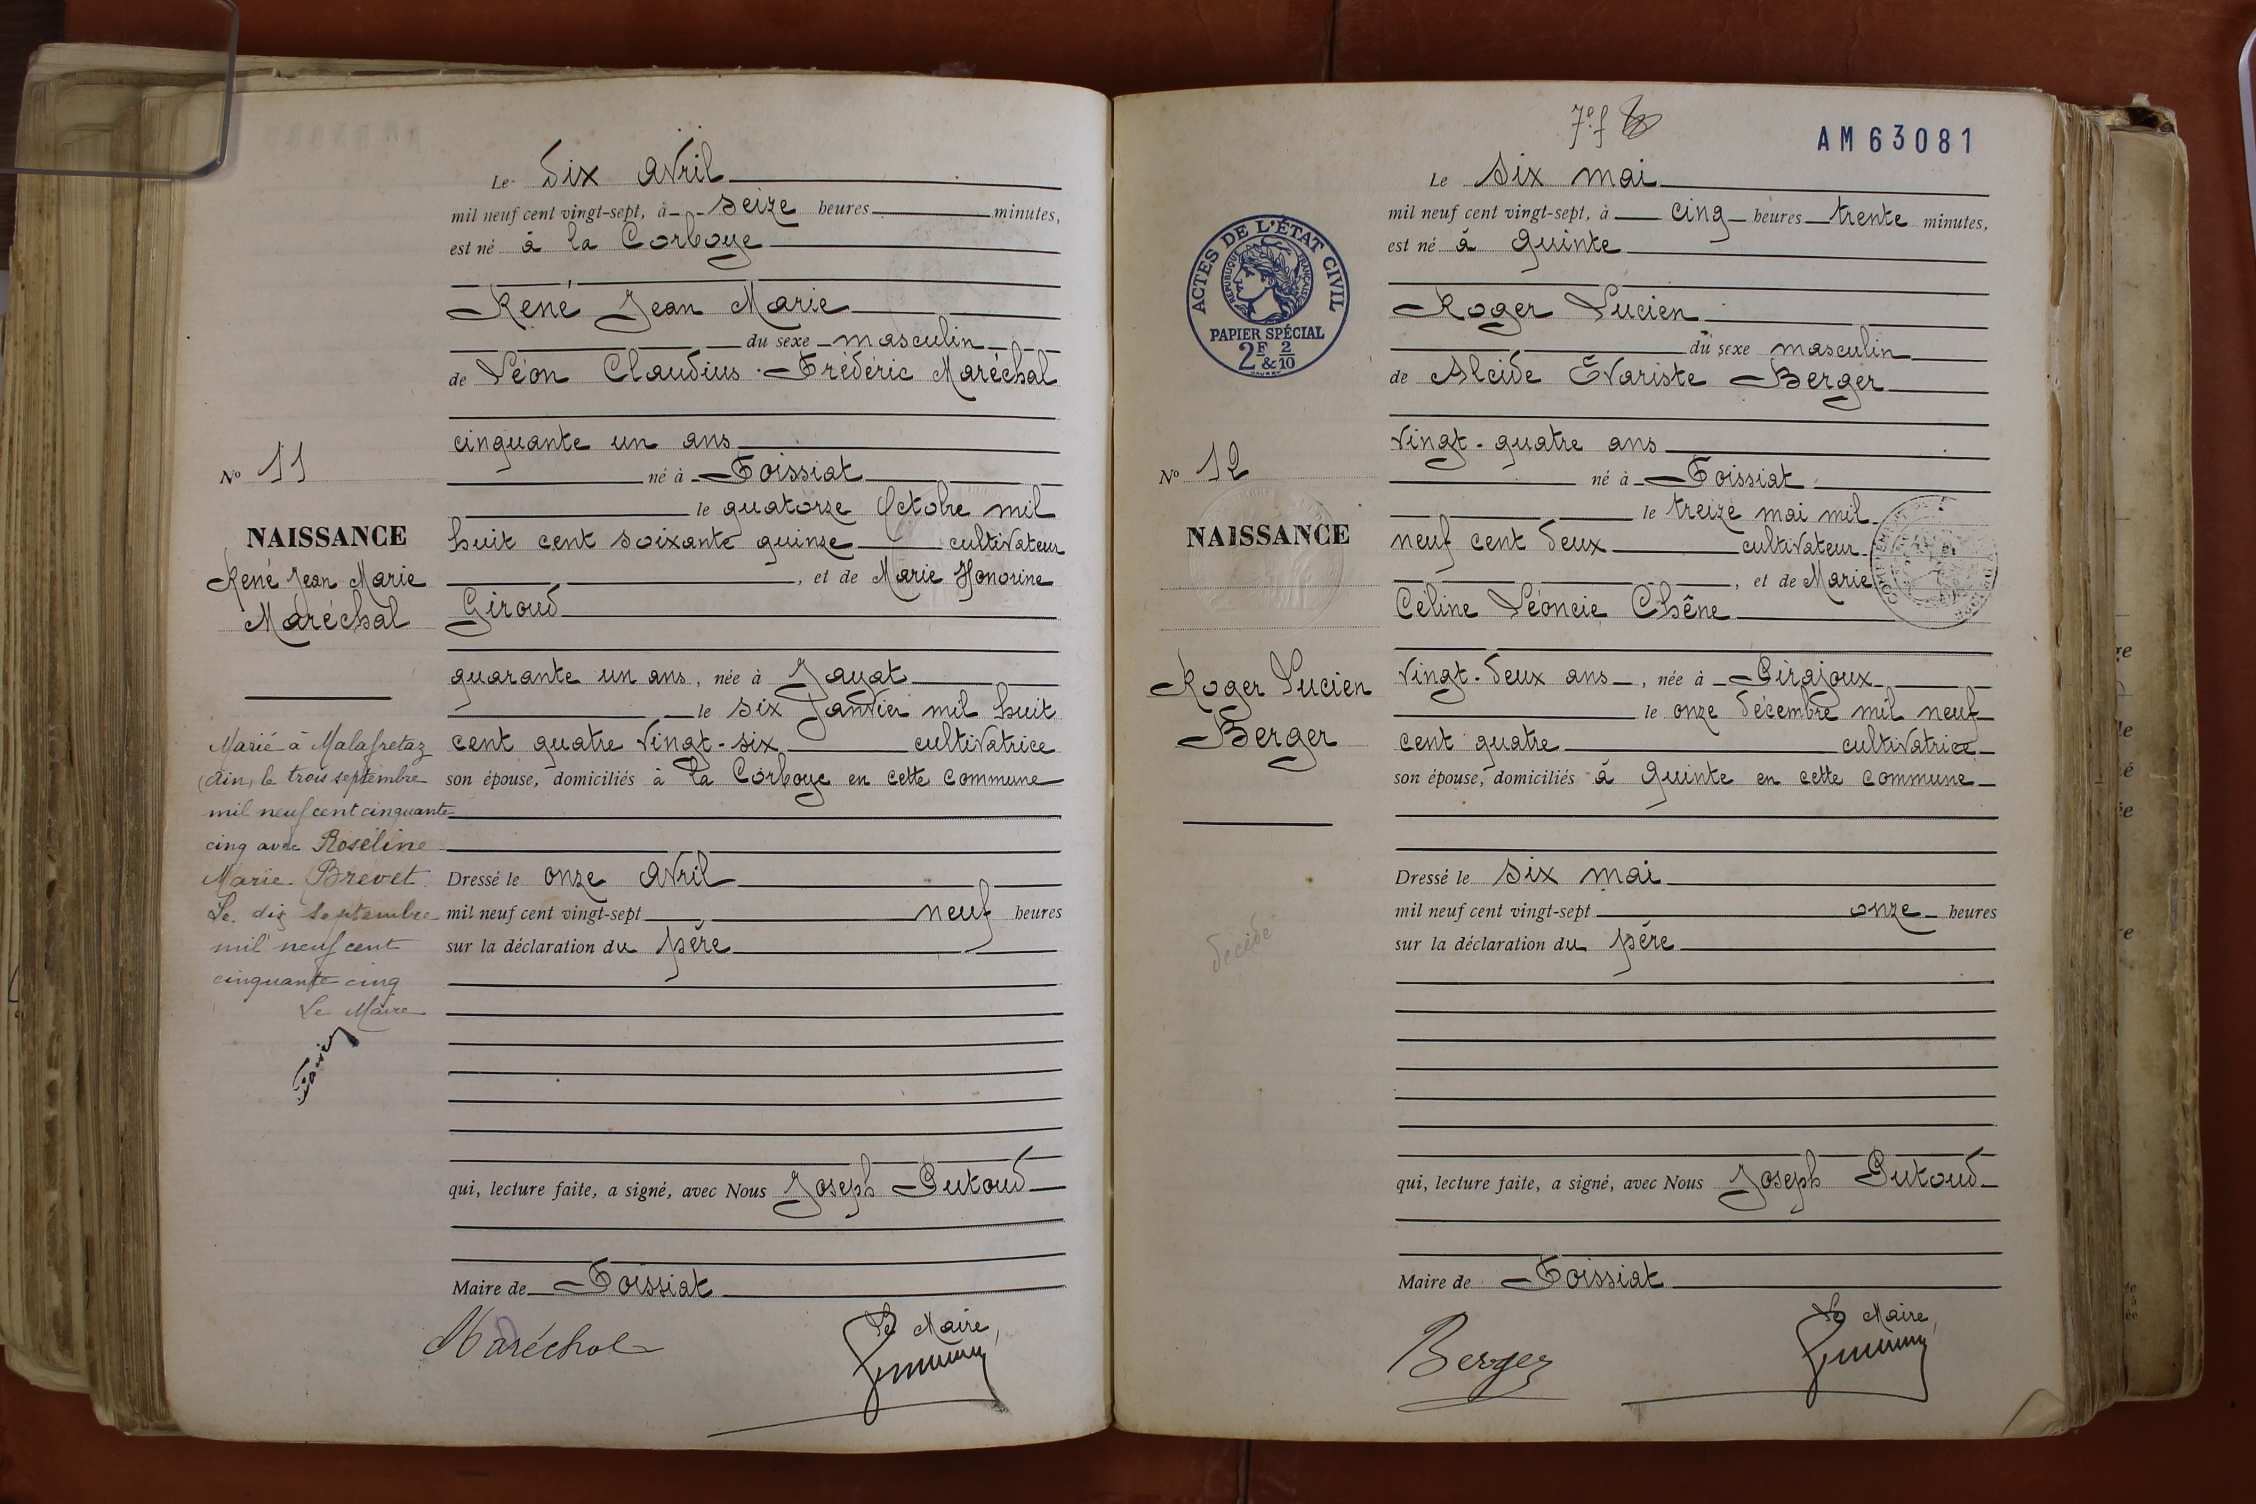 Le dix avril
mil neuf cent vingt-sept, à seize heures minutes,
est né à la Corboye
René Jean Marie
du sexe masculin
de Léon Claudius Frédéric Maréchal
cinquante un ans
né à Foissiat
le quatorze Octobre mil
huit cent soixante quinze cultivateur
, et de Marie Honorine
Giroud
quarante un ans, née à Jayat
le six Janvier mil huit
cent quatre vingt-six cultivatrice
son épouse, domiciliés à la Corboye en cette commune
Dressé le onze avril
mil neuf cent vingt-sept neuf heures
sur la déclaration du père
qui, lecture faite, a signé, avec Nous Joseph Putoud
Maire de Foissiat
Maréchal
Le Maire,
No 11
NAISSANCE
René Jean Marie
Maréchal
Marié à Malafretaz
(Ain) le trois septembre
mil neuf cent cinquante
cinq avec Roséline
Marie Brevet
Le dix septembre
mil neuf cent
cinquante cinq
Le Maire
7e f
AM 63081
ACTES DE L'ÉTAT CIVIL
RÉPUBLIQUE FRANÇAISE
PAPIER SPÉCIAL
2F & 2/10
Le six mai
mil neuf cent vingt-sept, à cinq heures trente minutes,
est né à Quinte
Roger Lucien
du sexe masculin
de Alcide Evariste Berger
vingt-quatre ans
né à Foissiat
le treize mai mil
neuf cent deux cultivateur
, et de Marie
Céline Léoncie Chêne
vingt-deux ans, née à Pirajoux
le onze décembre mil neuf
cent quatre cultivatrice
son épouse, domiciliés à Quinte en cette commune
Dressé le six mai
mil neuf cent vingt-sept onze heures
sur la déclaration du père
qui, lecture faite, a signé, avec Nous Joseph Putoud
Maire de Foissiat
Berger
Le Maire,
No 12
NAISSANCE
Roger Lucien
Berger
décédé